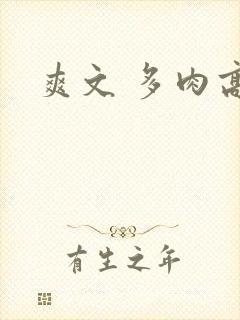 爽文 多肉高
有生之年